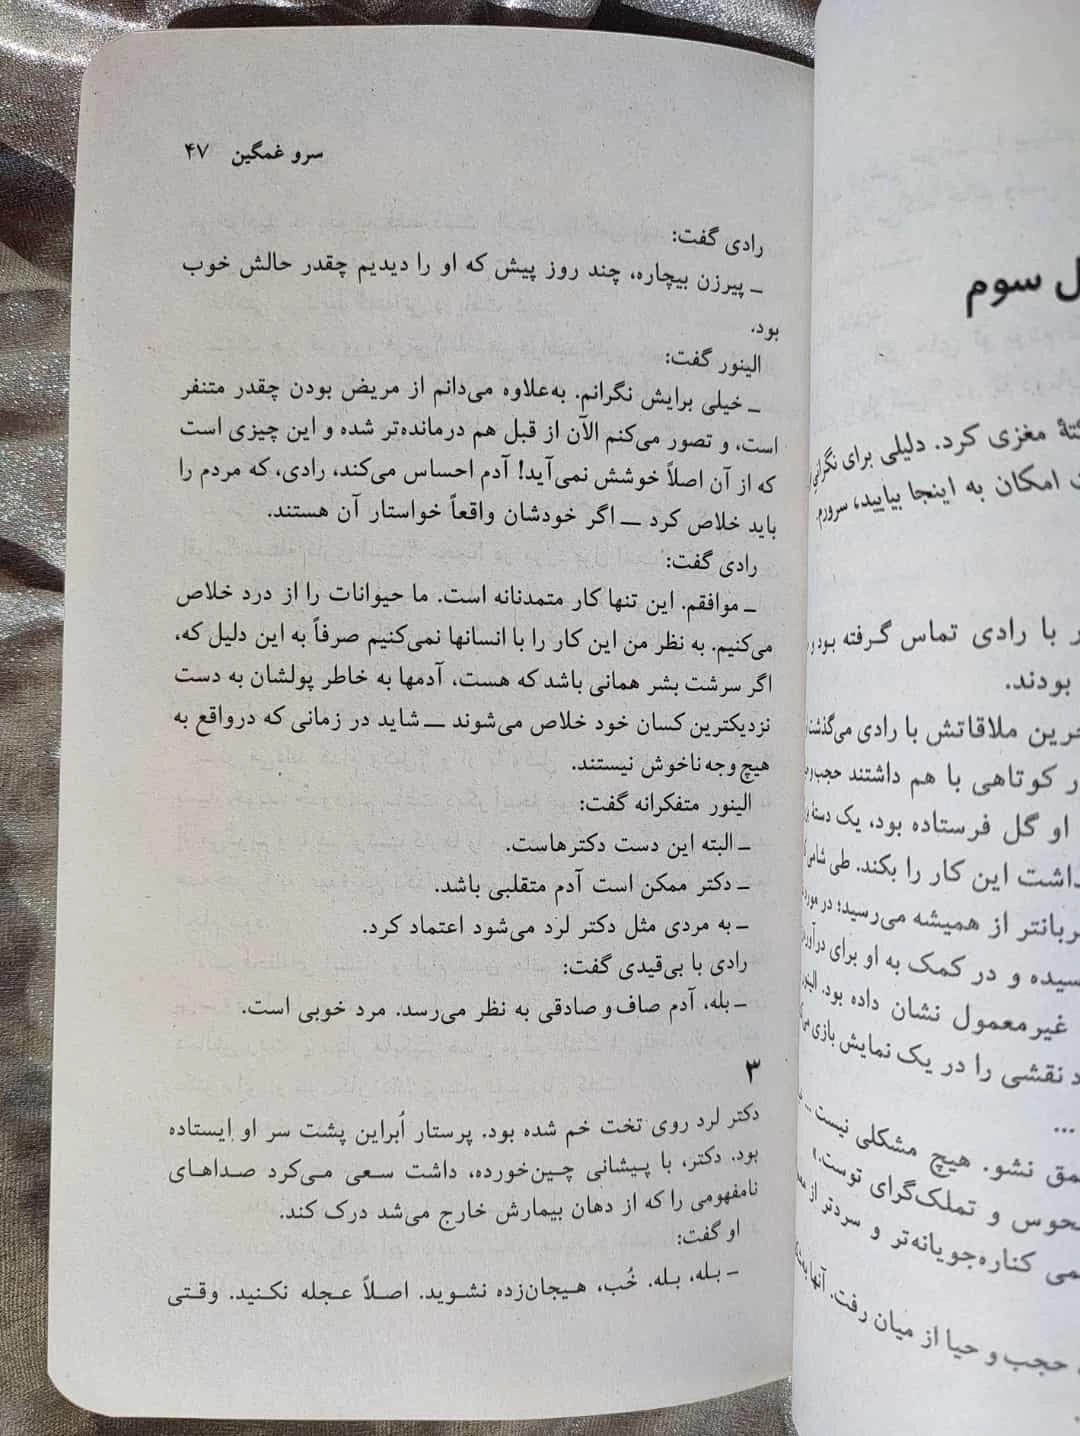 سرو غمگین ۴۷
رادی گفت:
ـ پیرزن بیچاره، چند روز پیش که او را دیدیم چقدر حالش خوب
بود.
الینور گفت:
ـ خیلی برایش نگرانم. به‌علاوه می‌دانم از مریض بودن چقدر متنفر
است، و تصور می‌کنم الآن از قبل هم درمانده‌تر شده و این چیزی است
که از آن اصلاً خوشش نمی‌آید! آدم احساس می‌کند، رادی، که مردم را
باید خلاص کرد ــ اگر خودشان واقعاً خواستار آن هستند.
رادی گفت:
ـ موافقم. این تنها کار متمدنانه است. ما حیوانات را از درد خلاص
می‌کنیم. به نظر من این کار را با انسانها نمی‌کنیم صرفاً به این دلیل که،
اگر سرشت بشر همانی باشد که هست، آدمها به خاطر پولشان به دست
نزدیکترین کسان خود خلاص می‌شوند ــ شاید در زمانی که درواقع به
هیچ وجه ناخوش نیستند.
الینور متفکرانه گفت:
ـ البته این دست دکترهاست.
ـ دکتر ممکن است آدم متقلبی باشد.
ـ به مردی مثل دکتر لرد می‌شود اعتماد کرد.
رادی با بی‌قیدی گفت:
ـ بله، آدم صاف و صادقی به نظر می‌رسد. مرد خوبی است.
۳
دکتر لرد روی تخت خم شده بود. پرستار اُبراین پشت سر او ایستاده
بود. دکتر، با پیشانی چین‌خورده، داشت سعی می‌کرد صداهای
نامفهومی را که از دهان بیمارش خارج می‌شد درک کند.
او گفت:
ـ بله، بله. خُب، هیجان‌زده نشوید. اصلاً عجله نکنید. وقتی
سوم
مغزی کرد. دلیلی برای نگرانی
امکان به اینجا بیایید، سرورم.
با رادی تماس گرفته بود و
بودند.
ملاقاتش با رادی می‌گذشت
کوتاهی با هم داشتند حجب و
او گل فرستاده بود، یک دستهٔ
این کار را بکند. طی
از همیشه می‌رسید؛ در مورد
و در کمک به او برای
غیرمعمول نشان داده بود.
نقشی را در یک نمایش بازی
...
نشو. هیچ مشکلی نیست ...
و تملک‌گرای توست.»
کناره‌جویانه‌تر و سردتر از
حجب و حیا از میان رفت. آنها